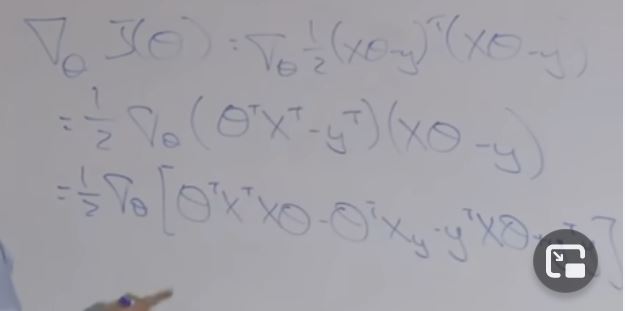 ∇_θ J(θ) = ∇_θ 1/2 (Xθ-y)^T (Xθ-y)
= 1/2 ∇_θ (θ^T X^T - y^T)(Xθ - y)
= 1/2 ∇_θ [θ^T X^T Xθ - θ^T X y - y^T Xθ + ]